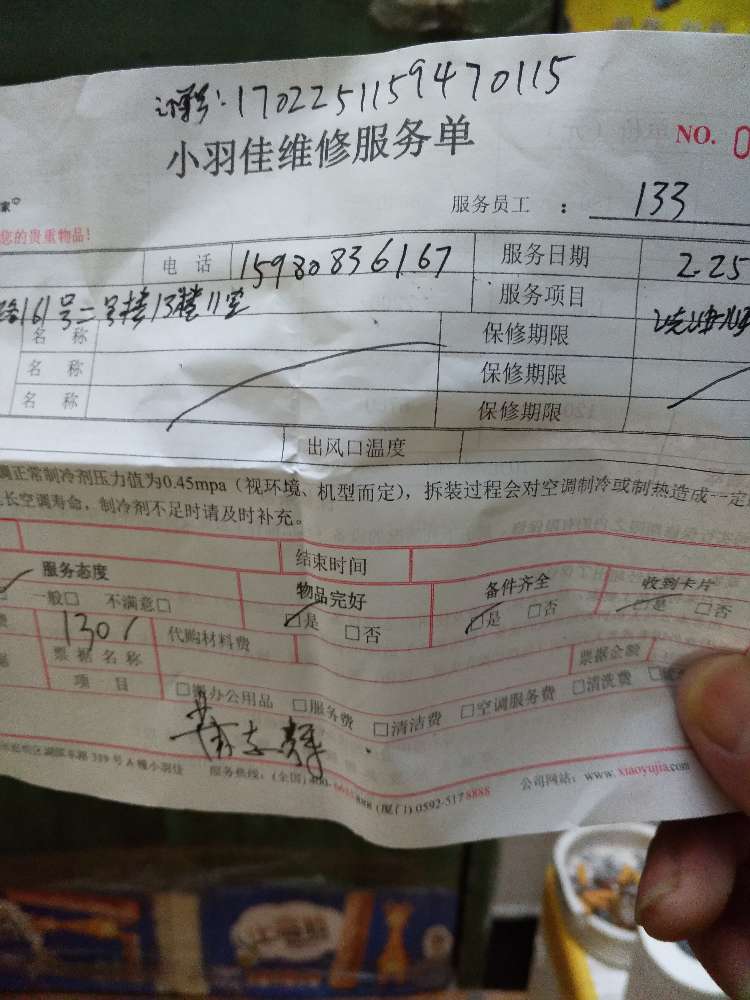 订单号:170225115947０115
小羽佳维修服务单
NO. 0
家
服务员工 : 133
您的贵重物品!
电 话 15980836167 服务日期 2.25
路161号二号楼13楼11室 服务项目
名 称 保修期限
名 称 保修期限
名 称 保修期限
出风口温度
调正常制冷剂压力值为0.45mpa（视环境、机型而定），拆装过程会对空调制冷或制热造成一定
长空调寿命，制冷剂不足时请及时补充。
结束时间
服务态度 物品完好 备件齐全 收到卡片
一般□ 不满意□ □是 □否 □是 □否 □是 □否
费 130/ 代购材料费
据 票据名称 票据金额
项 目 □办公用品 □服务费 □清洁费 □空调服务费 □清洗费
389号A幢小羽佳 服务热线：(全国)400- 888 (厦门)0592-5178888 公司网站：www.xiaoyujia.com